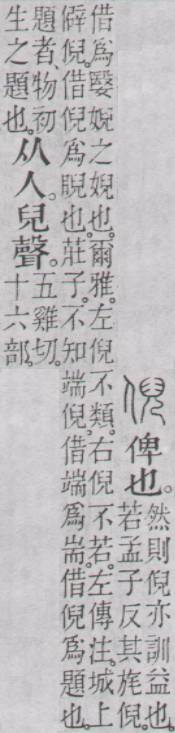 倪
俾也。
然則倪亦訓益也。
若孟子反其旄倪。
借爲嫛婗之婗也。爾雅。左倪不類。右倪不若。左傳注。城上
僻倪。借倪爲睨也。莊子。不知端倪。借端爲耑。借倪爲題也。
題者、物初
生之題也。
从人。兒聲。
五雞切。
十六部。